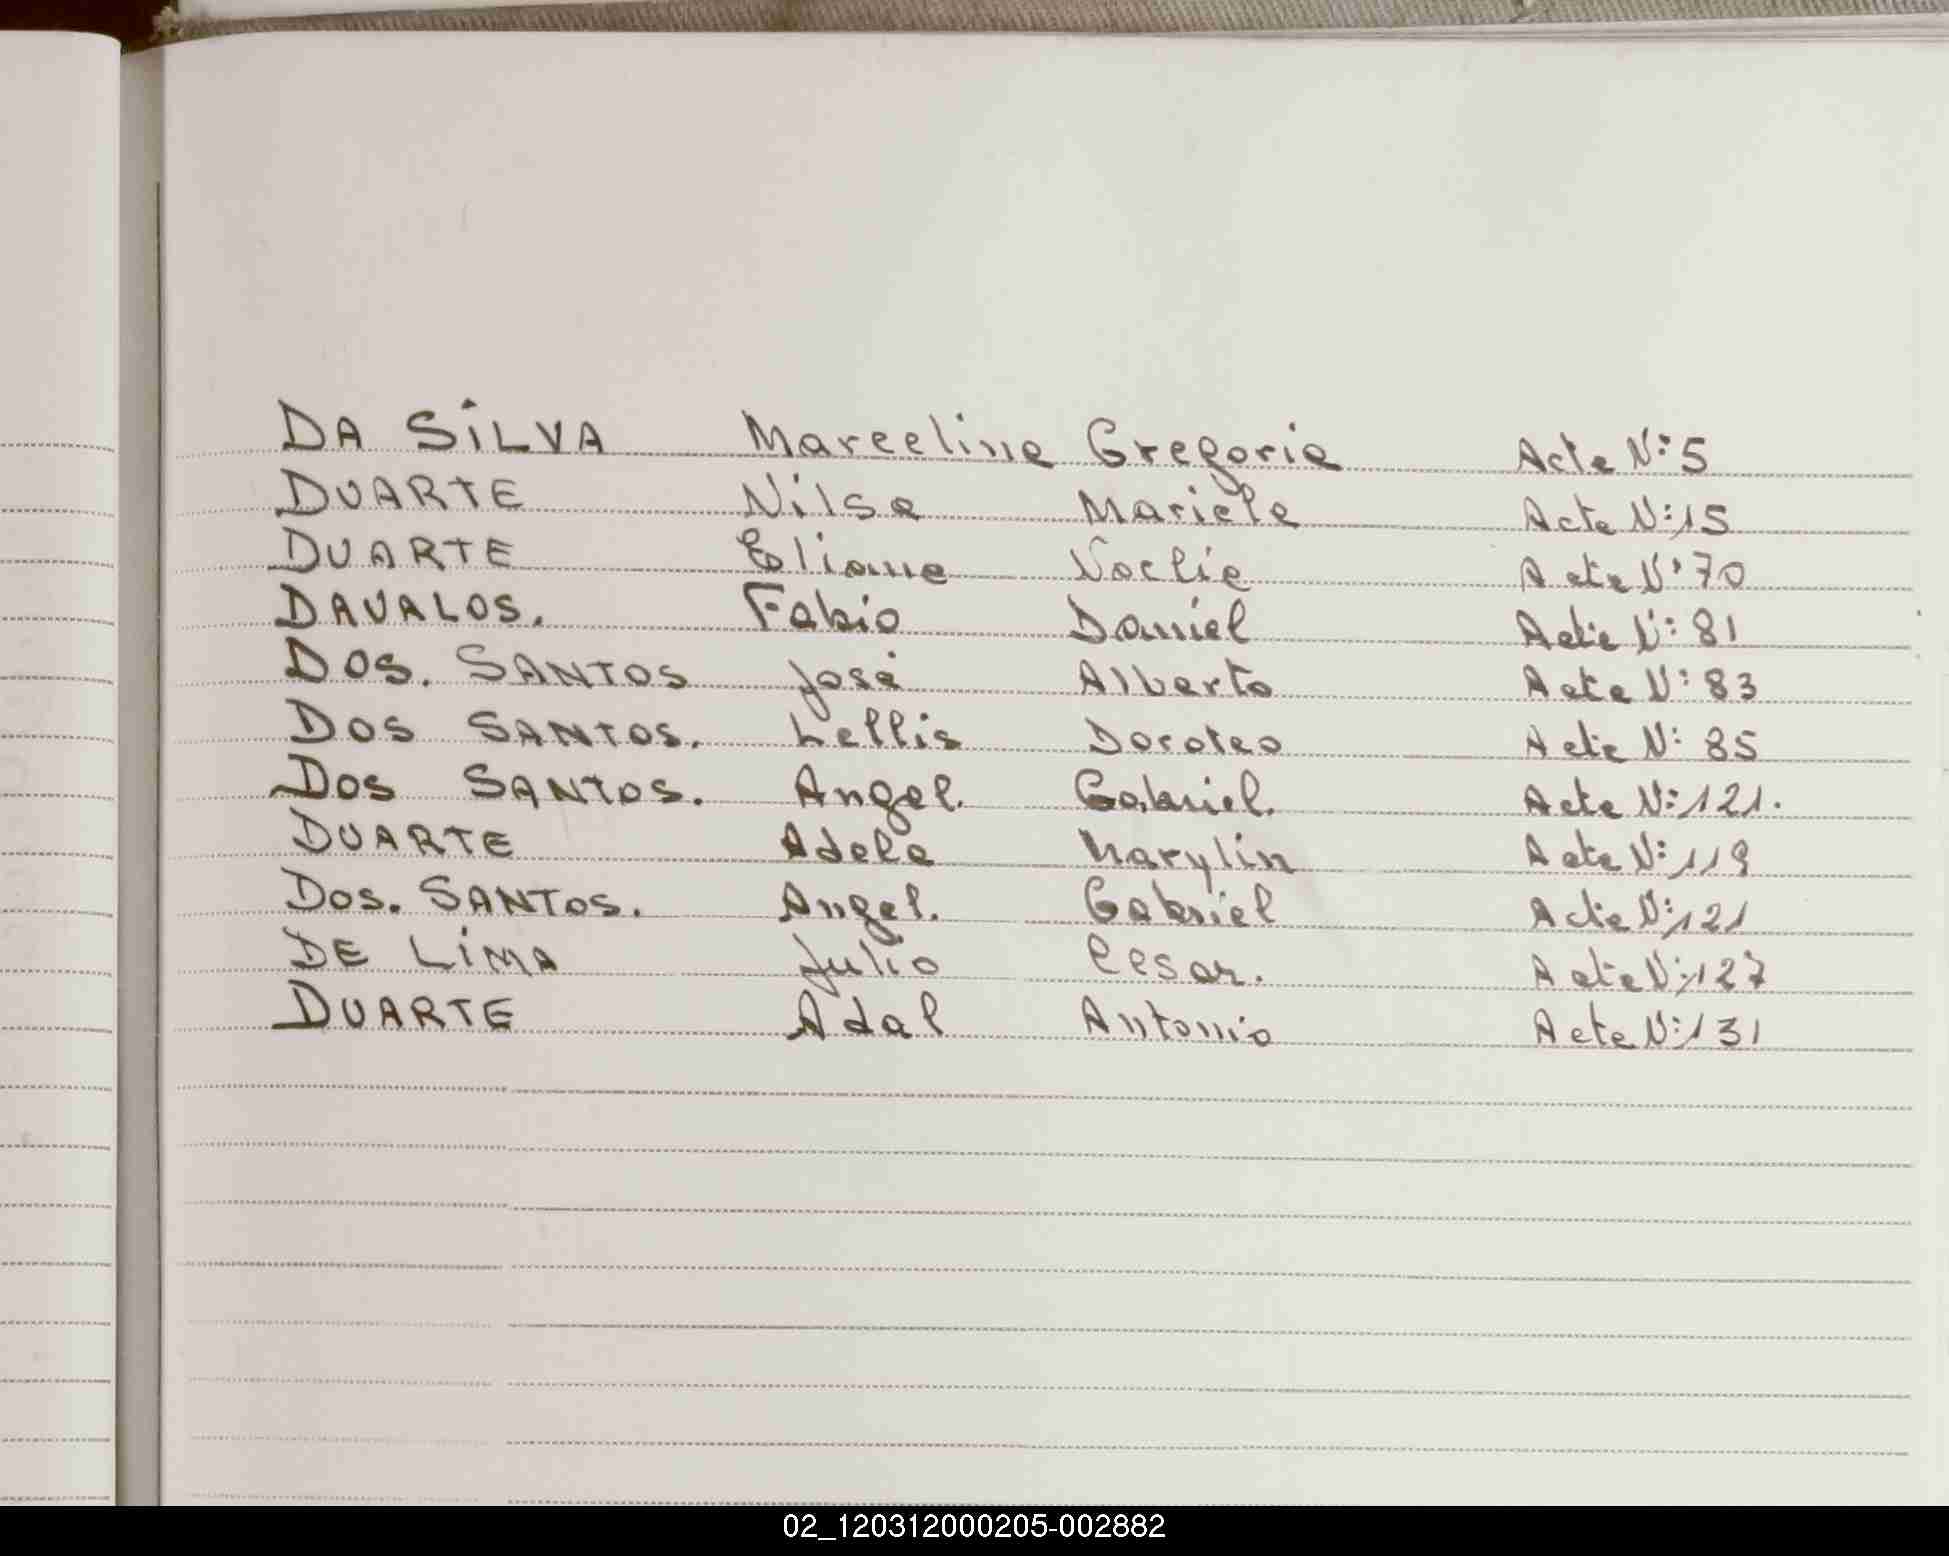 DA SILVA Marcelina Gregoria Acta N: 5
DUARTE Nilsa Mariela Acta N: 15
DUARTE Eliana Noelia Acta N: 70
DAVALOS. Fabio Daniel Acta N: 81
DOS. SANTOS José Alberto Acta N: 83
DOS SANTOS. Lellis Doroteo Acta N: 85
DOS SANTOS. Angel. Gabriel. Acta N: 121.
DUARTE Adela Marylin Acta N: 119
DOS. SANTOS. Angel. Gabriel Acta N: 121
DE LIMA Julio Cesar. Acta N: 127
DUARTE Adal Antonio Acta N: 131
02_120312000205-002882